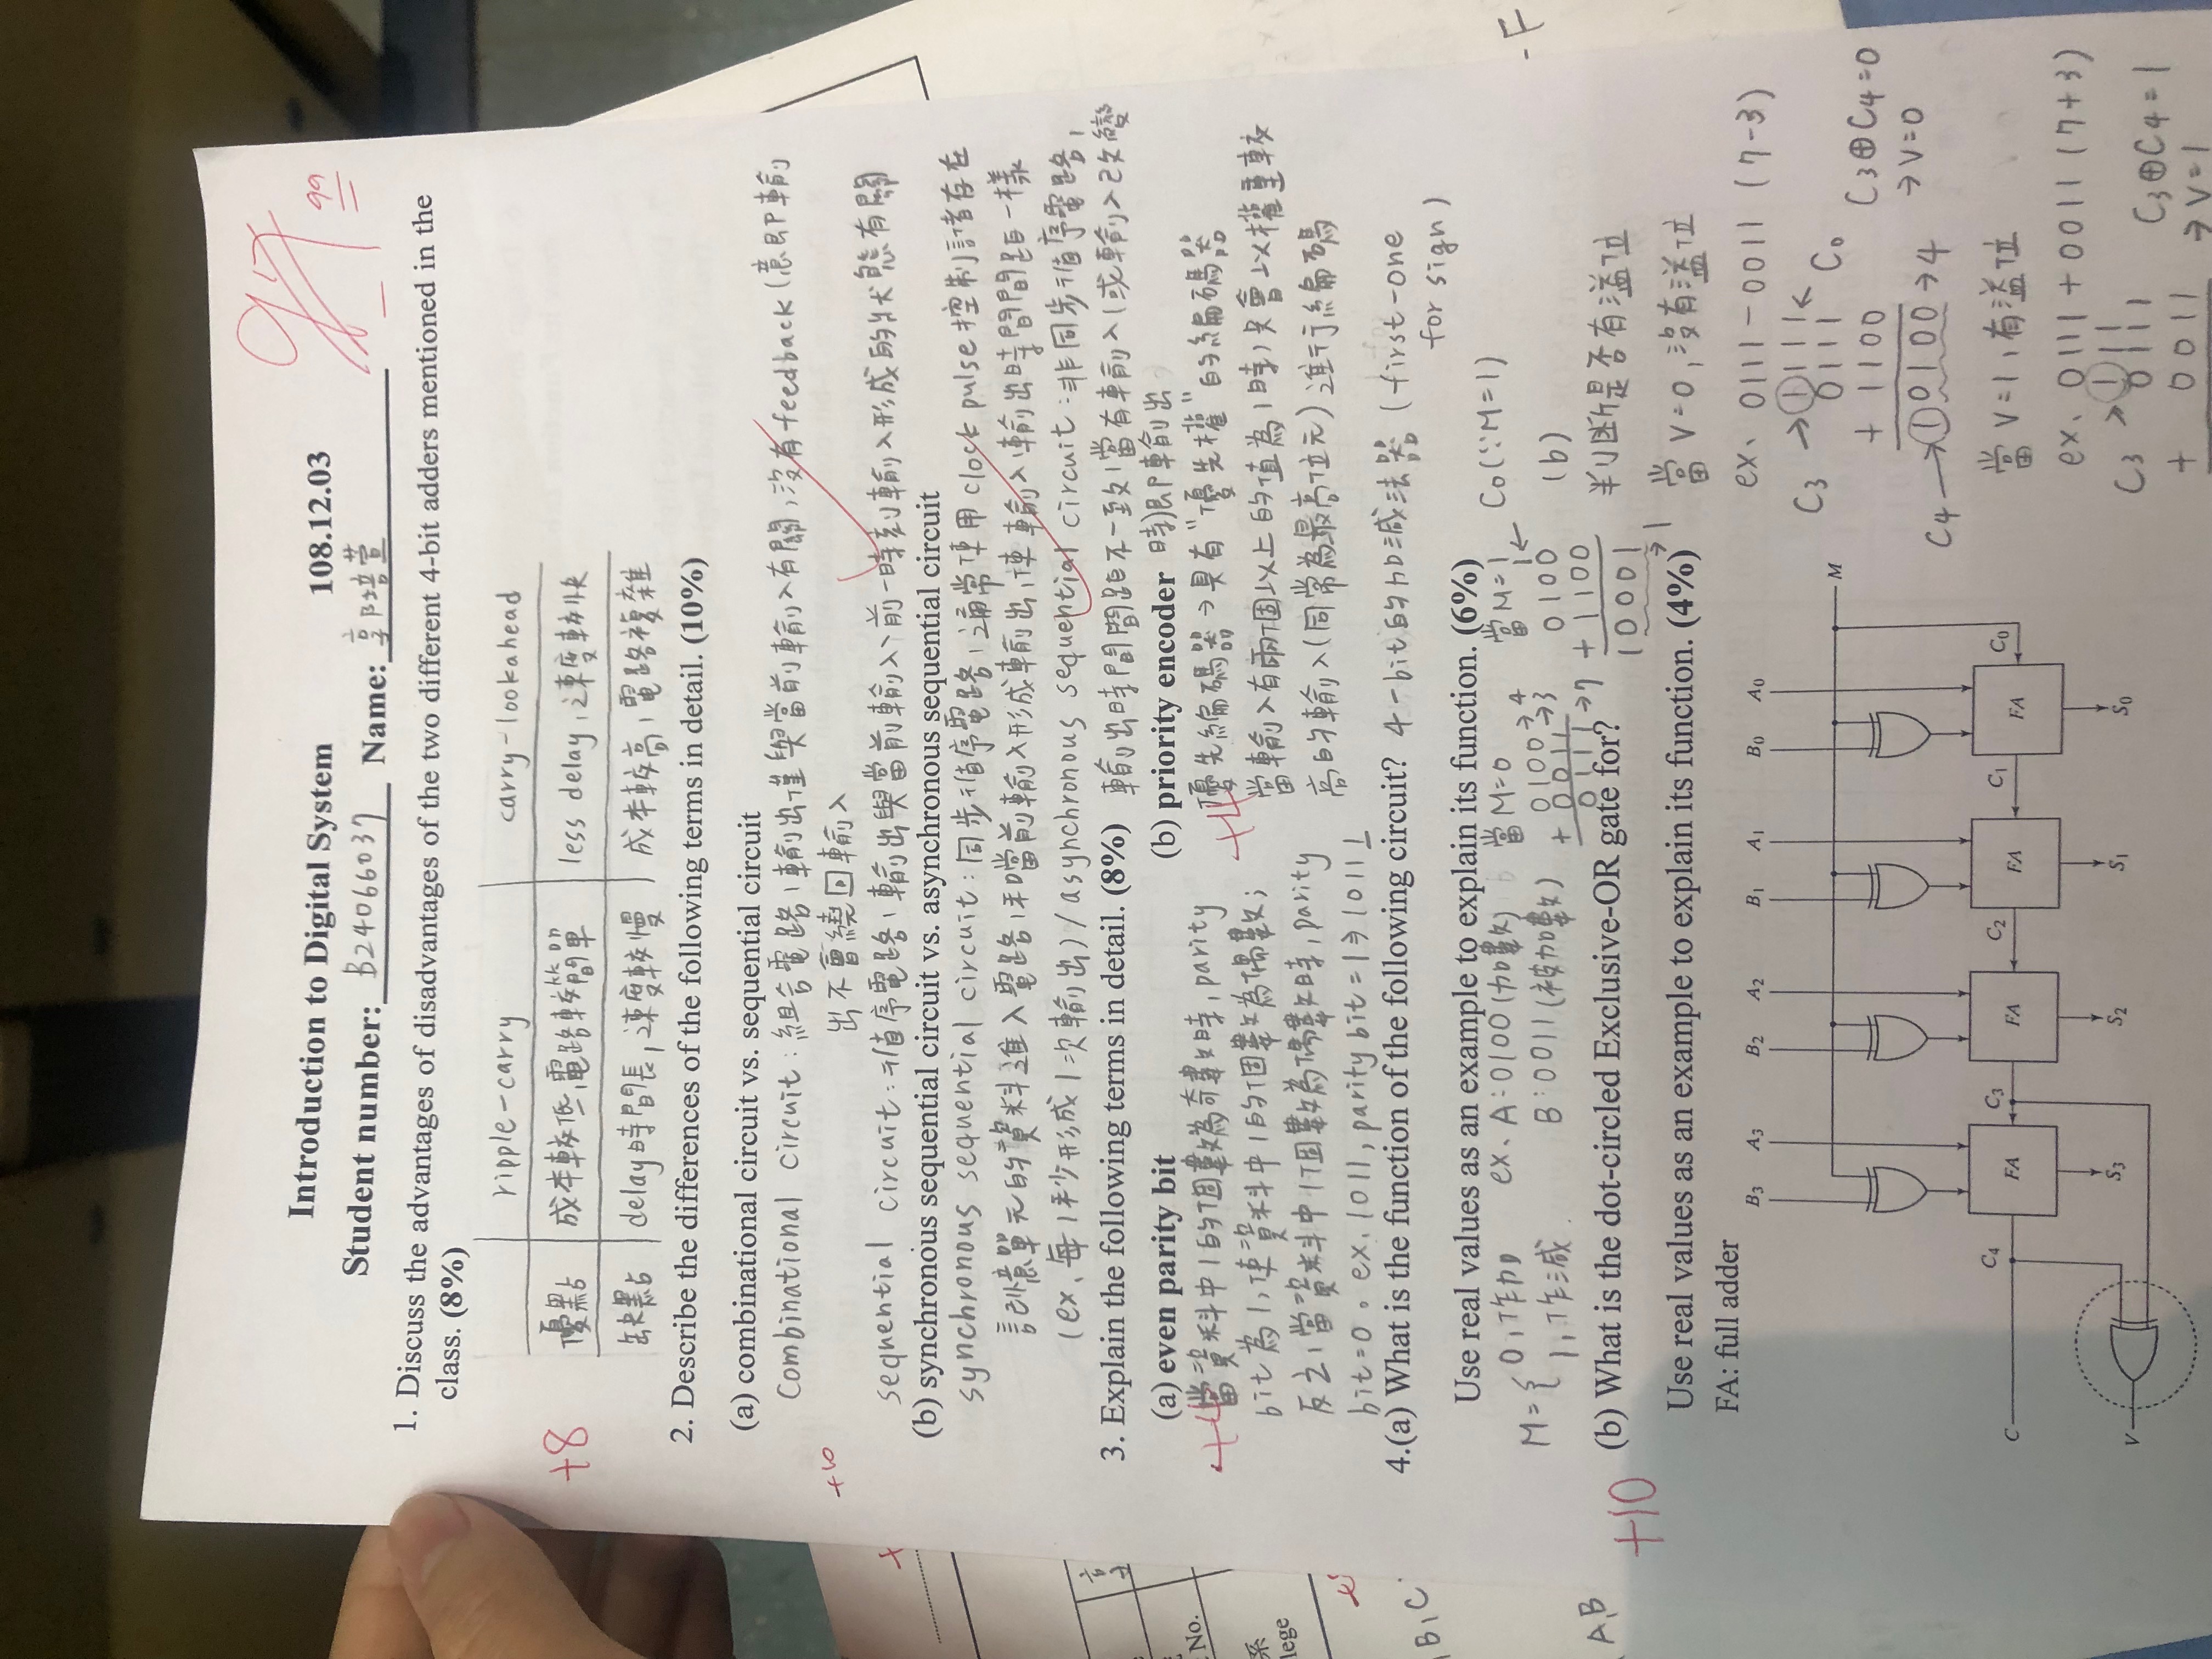 Introduction to Digital System 108.12.03
97
99
Student number: B24066037 Name: 郭培萱
1. Discuss the advantages of disadvantages of the two different 4-bit adders mentioned in the
class. (8%)
ripple-carry carry-lookahead
+8
優點 成本較低,電路較簡單 less delay,速度較快
缺點 delay時間長,速度較慢 成本較高,電路複雜
2. Describe the differences of the following terms in detail. (10%)
(a) combinational circuit vs. sequential circuit
Combinational circuit:組合電路,輸出僅與當前輸入有關,沒有feedback(意即輸
+10
出不會繞回輸入
sequential circuit:循序電路,輸出與當前輸入、前一時刻輸入形成的狀態有關
(b) synchronous sequential circuit vs. asynchronous sequential circuit
synchronous sequential circuit:同步循序電路,通常使用 clock pulse控制儲存在
記憶單元的資料進入電路,和當前輸入形成輸出,使輸入輸出時間間距一樣
(ex、每1秒形成1次輸出)/asynchronous sequential circuit:非同步循序電路,
3. Explain the following terms in detail. (8%) 輸出時間間距不一致,當有輸入(或輸入改變
(a) even parity bit (b) priority encoder 時)即輸出
+4 當資料中1的個數為奇數時,parity +4 優先編碼器→具有"優先權"的編碼器
bit為1,使資料中1的個數為偶數; 當輸入有兩個以上的值為1時,只會以權重較
反之,當資料中1個數為偶數時,parity 高的輸入(同常為最高位元)進行編碼
bit=0。ex.1011,parity bit=1⇒10111
4.(a) What is the function of the following circuit? 4-bit的加減法器 (first-one
for sign)
Use real values as an example to explain its function. (6%)
M={0,作加 ex、A:0100(加數) 當M=0 當M=1 C0(∵M=1)
1,作減 B:0011(被加數) 0100→4 1←
+0011→3 0100
0111→7 +1100
10001
→1
(b) What is the dot-circled Exclusive-OR gate for?
+10
Use real values as an example to explain its function. (4%)
(b)
判斷是否有溢位
當V=0,沒有溢位
ex、0111-0011 (7-3)
C3→1111←C0
0111
+1100
C4→10100→4
C3⊕C4=0
→V=0
當V=1,有溢位
ex、0111+0011 (7+3)
C3→111
0111
+0011
C3⊕C4=1
→V=1
FA: full adder
B3 A3 B2 A2 B1 A1 B0 A0
M
C C4 FA C3 FA C2 FA C1 FA C0
S3 S2 S1 S0
V
No.
系
lege
B,C
A,B
-F